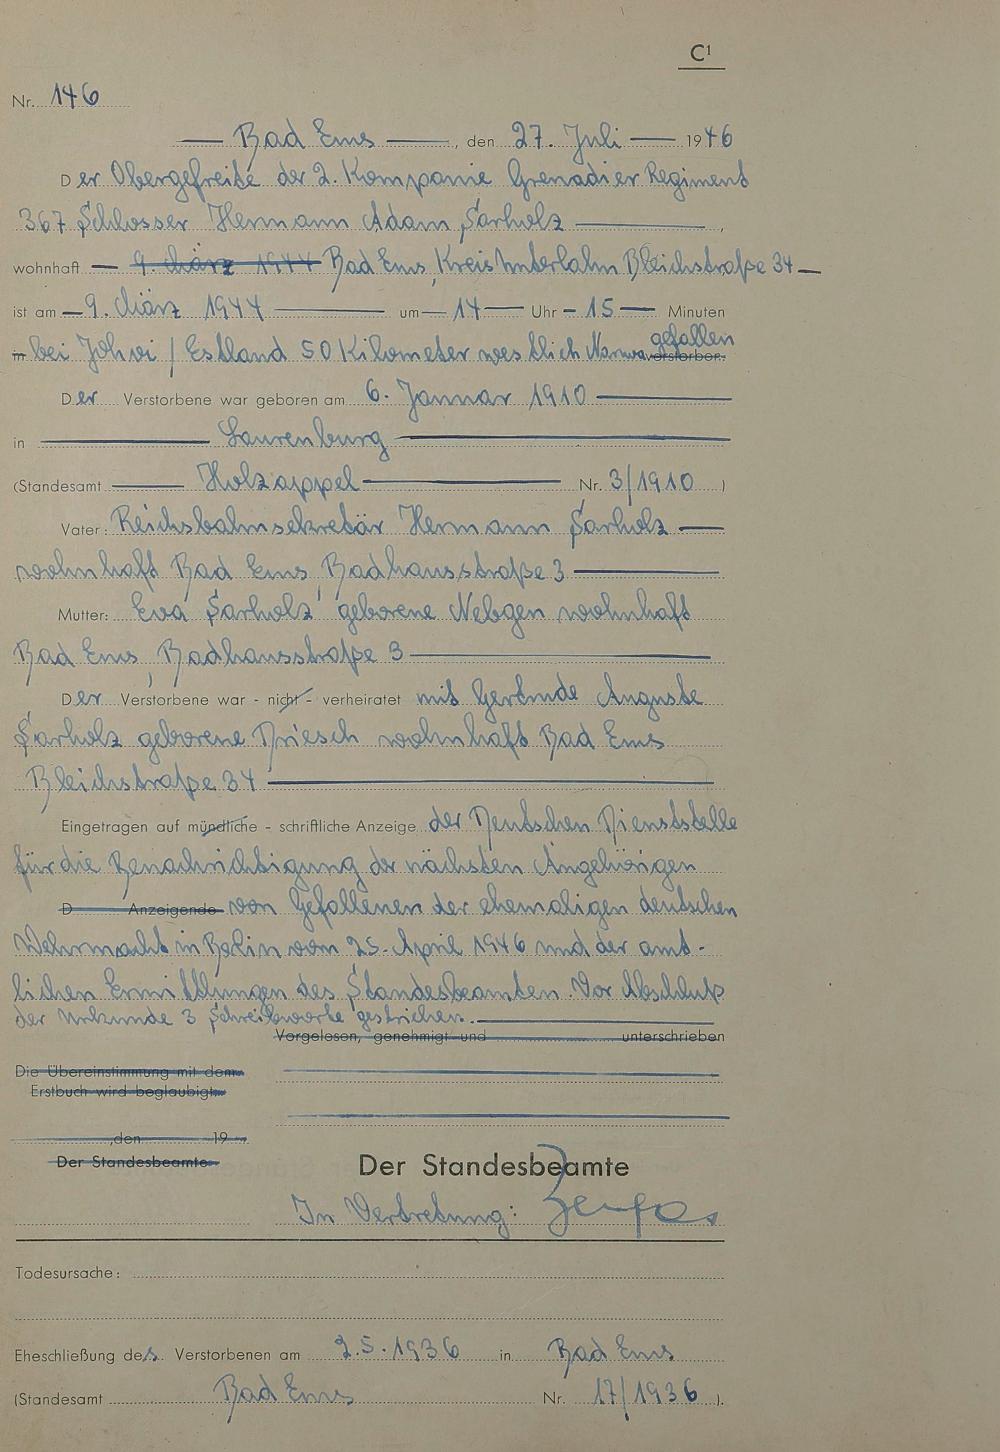 C1
Nr. 146
— Bad Ems —, den 27. Juli — 1946
Der Obergefreite der 2. Kompanie Grenadier Regiment
367 Schlosser Hermann Adam Sarholz —,
wohnhaft — 9. März 1944 Bad Ems, Kreis Unterlahn Bleichstraße 34 —
ist am — 9. März 1944 — um — 14 — Uhr — 15 — Minuten
in bei Johvi / Estland 50 Kilometer westlich Narwa gefallen verstorben.
Der Verstorbene war geboren am 6. Januar 1910 —
in — Laurenburg —
(Standesamt — Holzappel — Nr. 3/1910)
Vater: Reichsbahnsekretär Hermann Sarholz —
wohnhaft Bad Ems, Badhausstraße 3 —
Mutter: Eva Sarholz geborene Nebgen wohnhaft
Bad Ems, Badhausstraße 3 —
Der Verstorbene war - nicht - verheiratet mit Gertrude Auguste
Sarholz geborene Driesch wohnhaft Bad Ems
Bleichstraße 34 —
Eingetragen auf mündliche - schriftliche Anzeige der Deutschen Dienststelle
für die Benachrichtigung der nächsten Angehörigen
D Anzeigende von Gefallenen der ehemaligen deutschen
Wehrmacht in Berlin vom 25. April 1946 und der amt-
lichen Ermittlungen des Standesbeamten. Vor Abschluß
der Urkunde 3 Schreibworte gestrichen. —
Vorgelesen, genehmigt und unterschrieben
Die Übereinstimmung mit dem
Erstbuch wird beglaubigt
, den 19
Der Standesbeamte
Der Standesbeamte
In Vertretung: Zerfas
Todesursache:
Eheschließung des Verstorbenen am 2.5.1936 in Bad Ems
(Standesamt Bad Ems Nr. 17/1936).